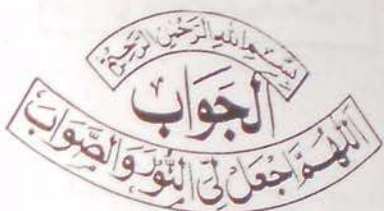 بِسْمِ اللهِ الرَّحْمٰنِ الرَّحِيْمِ
اَلْجَوَاب
اَللّٰهُمَّ اجْعَلْ لِّیَ النُّوْرَ وَالصَّوَابَ